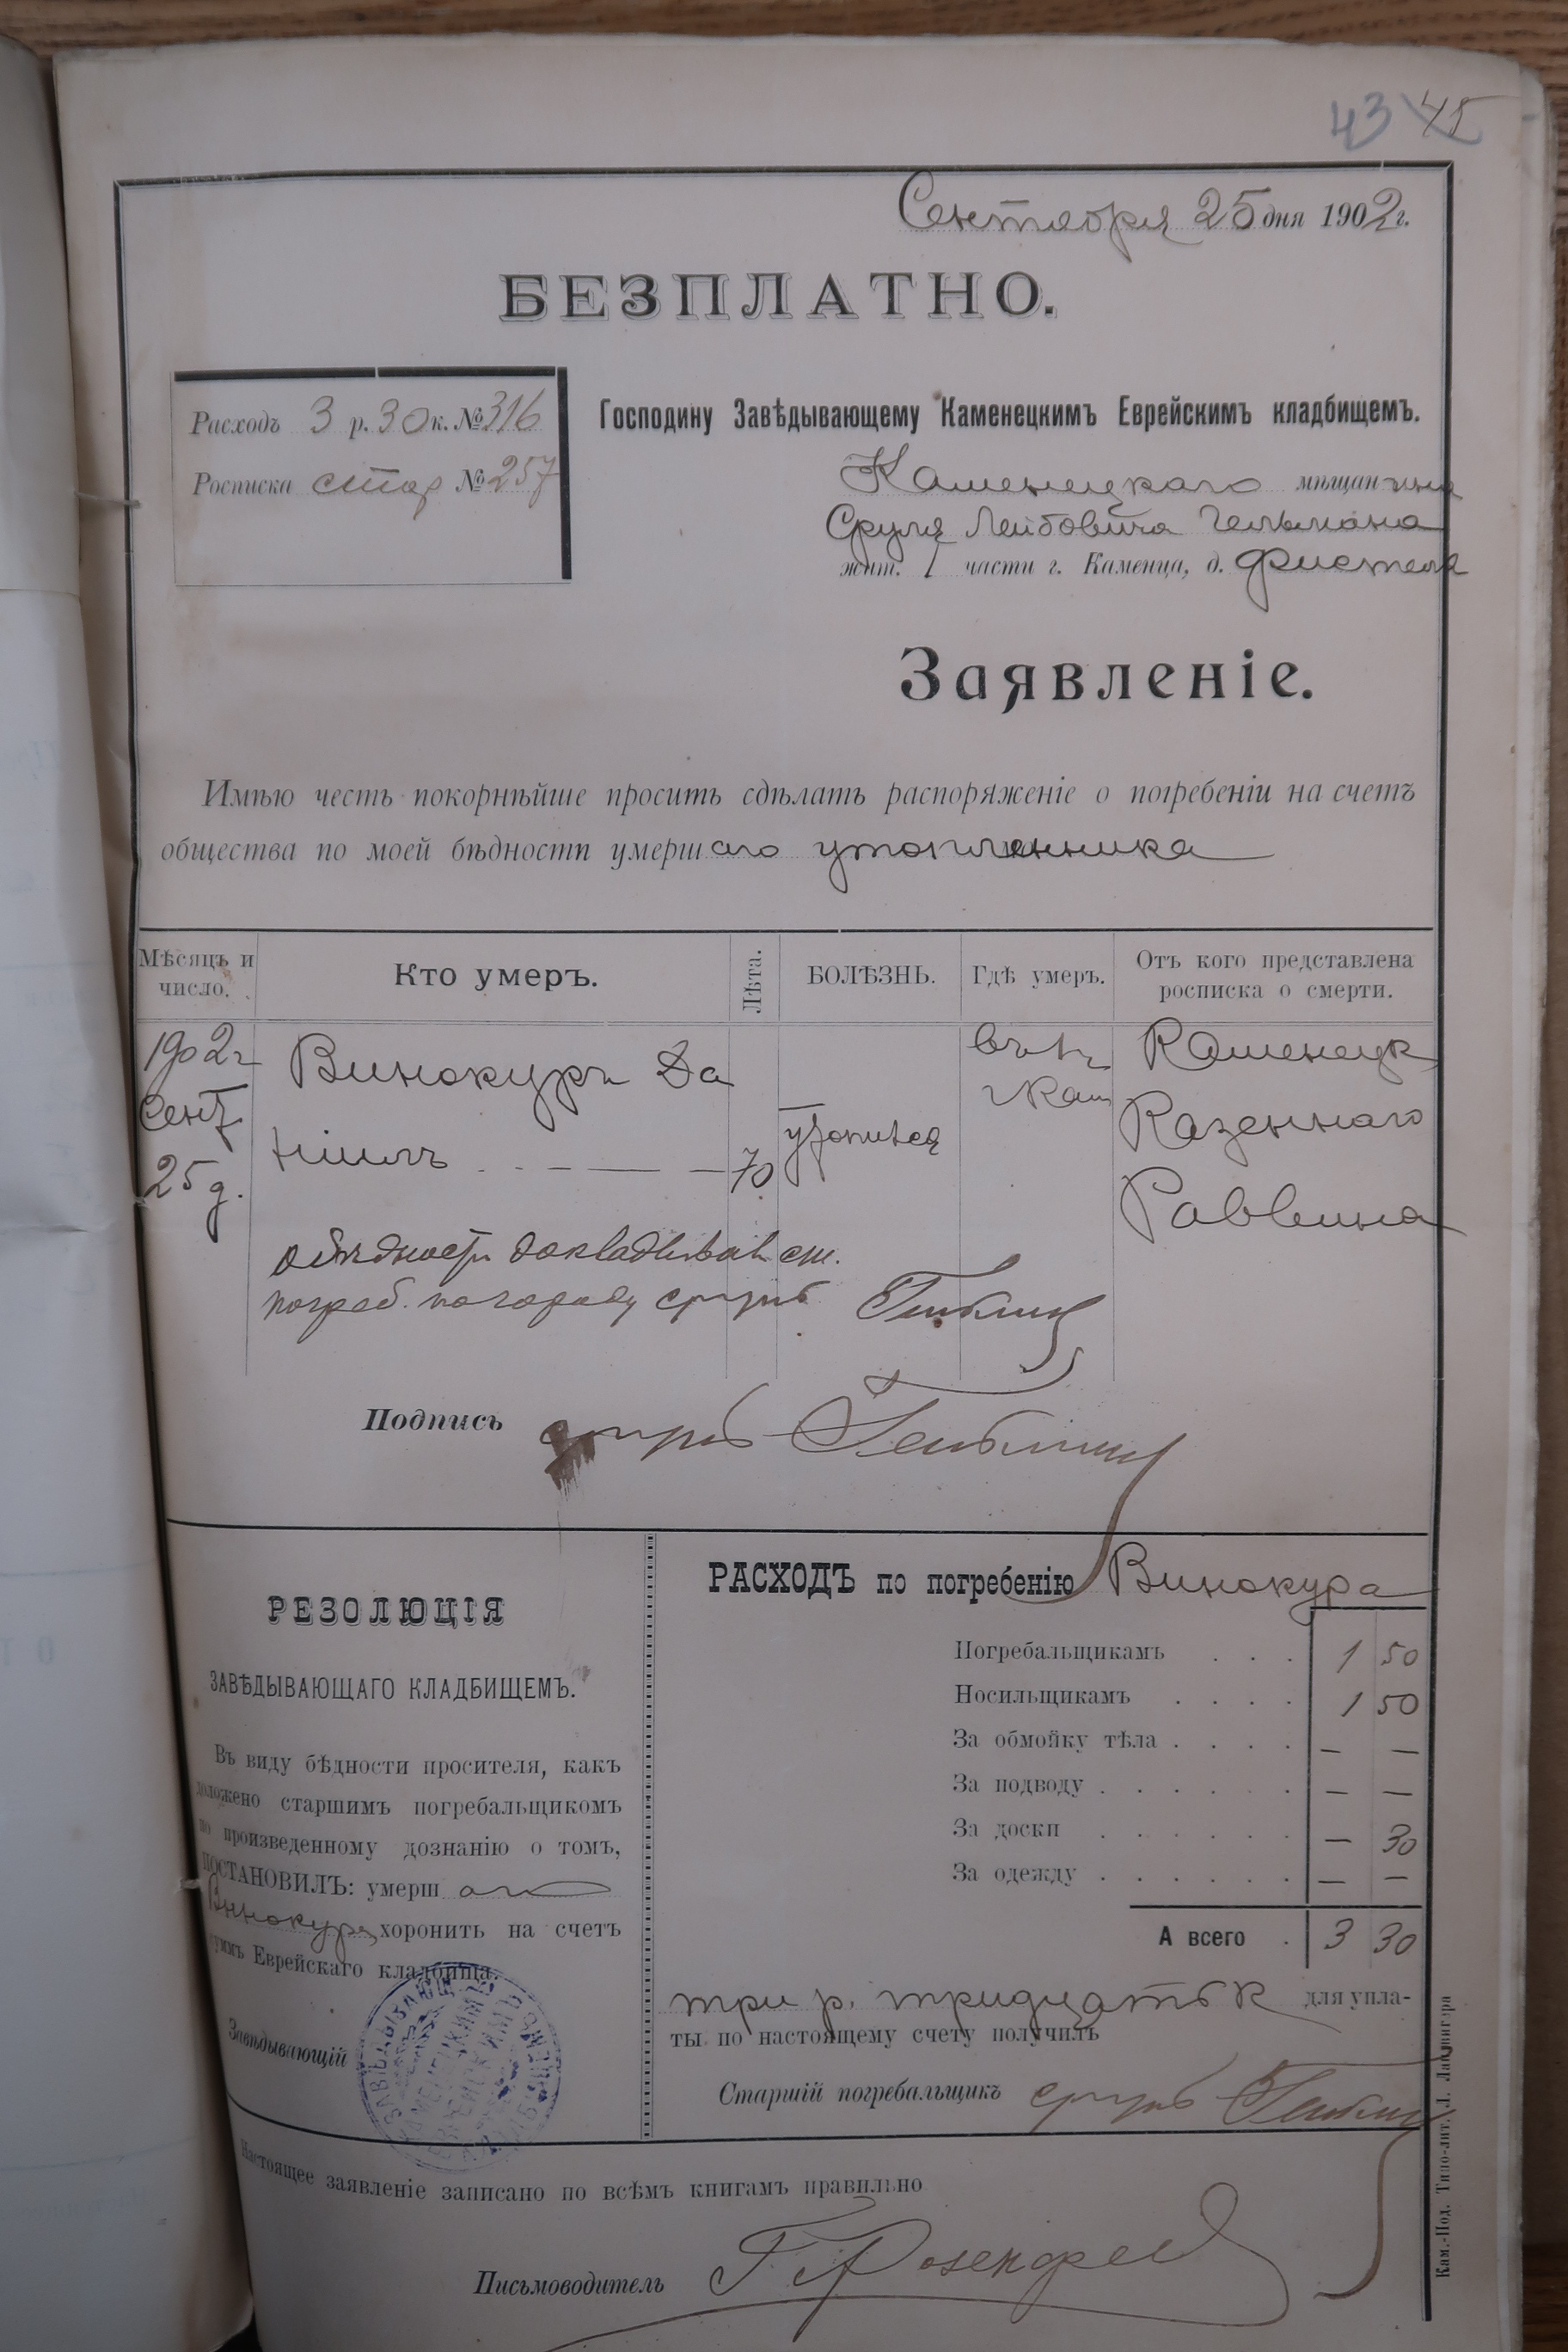 43 45
Сентября 25 дня 1902 г.
БЕЗПЛАТНО.
Расходъ 3 р. 30 к. № 316
Росписка стар № 257
Господину Завѣдывающему Каменецкимъ Еврейскимъ кладбищемъ.
Каменецкаго мѣщанина
Сруля Лейбовича Гельмана
жит. 1 части г. Каменца, д. Фистеля
Заявленіе.
Имѣю честь покорнѣйше просить сдѣлать распоряженіе о погребеніи на счетъ
общества по моей бѣдности умершаго утопленника
Мѣсяцъ и число. Кто умеръ. Лѣта. БОЛѢЗНЬ. Гдѣ умеръ. Отъ кого представлена росписка о смерти.
1902 г Винокуръ Да въ 1 ч Каменецк
Сент ніилъ 70 утопился г Кам Казеннаго
25 д. Раввина
о бѣдности докладывалъ ст.
погреб. по городу сруль Гельман
Подпись сруль Гельман
РЕЗОЛЮЦІЯ
ЗАВѢДЫВАЮЩАГО КЛАДБИЩЕМЪ.
Въ виду бѣдности просителя, какъ
доложено старшимъ погребальщикомъ
по произведенному дознанію о томъ,
ПОСТАНОВИЛЪ: умершаго
Винокура хоронить на счетъ
суммъ Еврейскаго кладбища.
Завѣдывающій
РАСХОДЪ по погребенію Винокура
Погребальщикамъ . . . 1 50
Носильщикамъ . . . . 1 50
За обмойку тѣла . . . . — —
За подводу . . . . . . — —
За доски . . . . . . — 30
За одежду . . . . . . — —
А всего . 3 30
три р. тридцать к для упла-
ты по настоящему счету получилъ
Старшій погребальщикъ сруль Гельман
Настоящее заявленіе записано по всѣмъ книгамъ правильно
Письмоводитель
Кам.-Под. Типо-лит. Л. Ландвигера